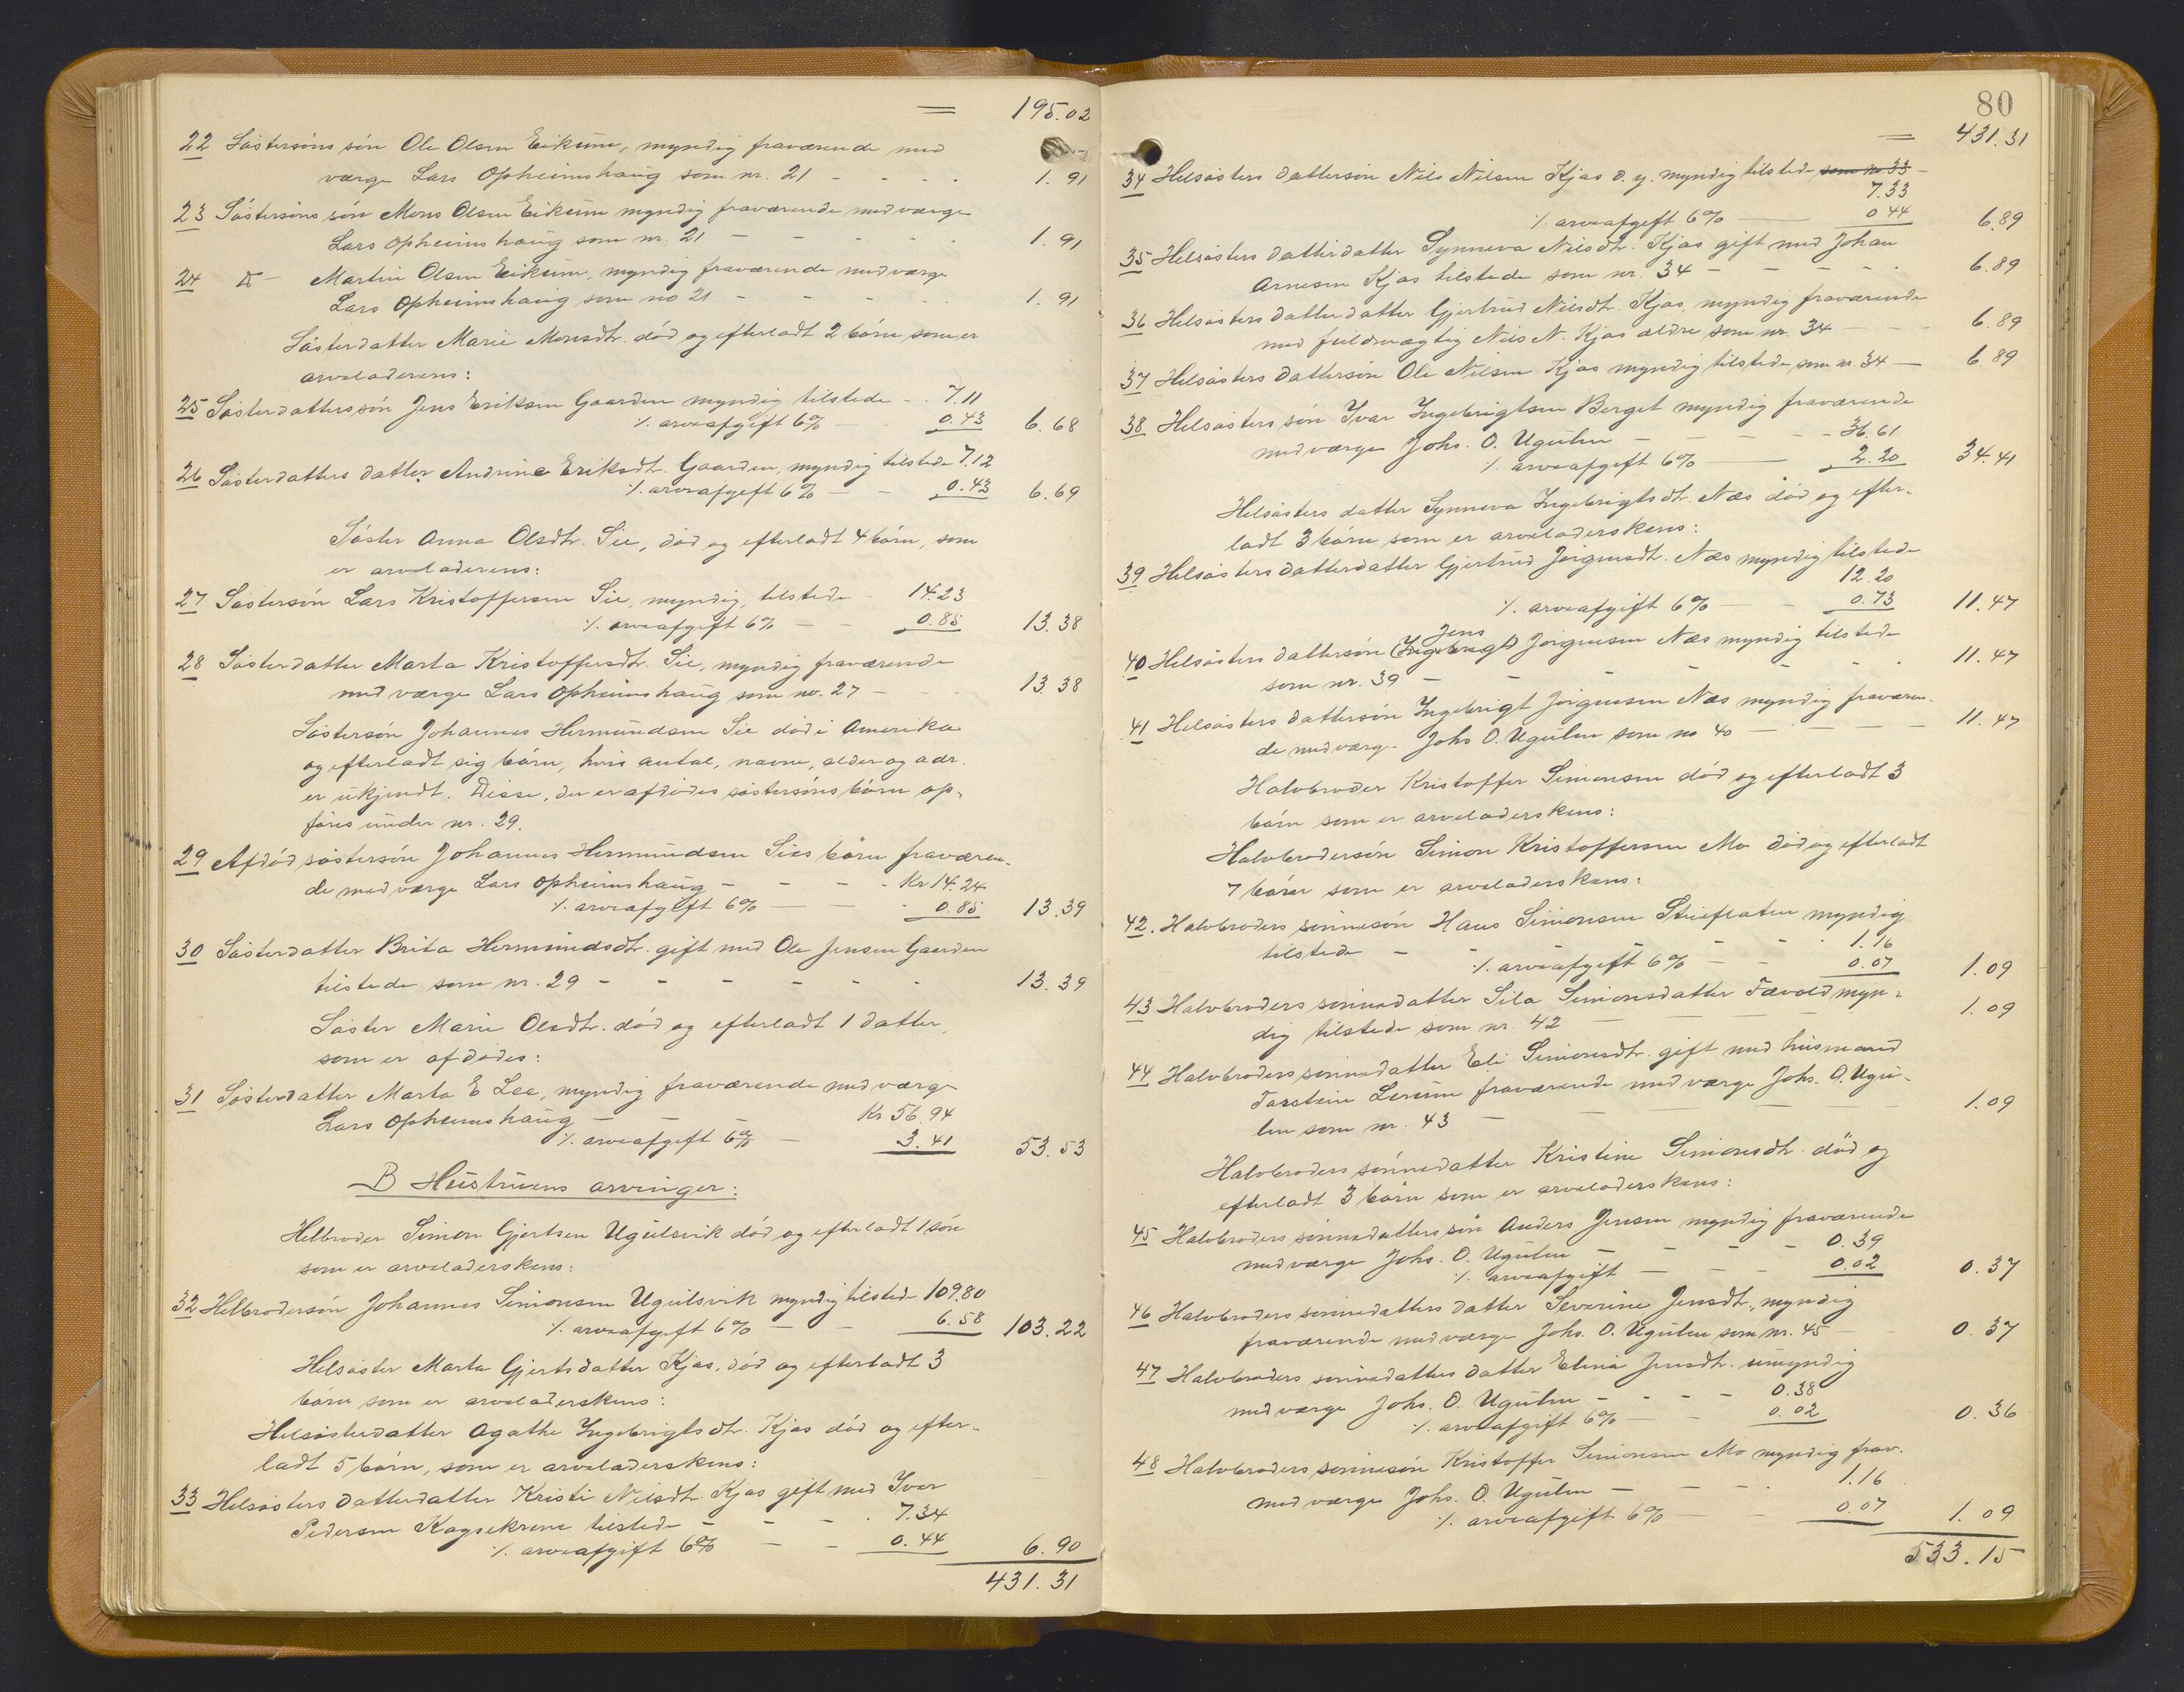 = 195.02
22 Søstersøns søn Ole Olsen Eikum, myndig fraværende med
værge Lars Opheimshaug som nr. 21 - - - - 1.91
23 Søstersøns søn Mons Olsen Eikum myndig fraværende med værge
Lars Opheimshaug som nr. 21 - - - - - 1.91
24 Do - Martin Olsen Eikum, myndig fraværende med værge
Lars Opheimshaug som no 21 - - - - 1.91
Søsterdatter Marie Monsdtr. død og efterladt 2 børn som er
arveladerens:
25 Søsterdatters søn Jens Eriksen Gaarden myndig tilstede - - 7.11
% arveafgift 6% - - 0.43 6.68
26 Søsterdatters datter Andrine Eriksdtr. Gaarden, myndig tilstede 7.12
% arveafgift 6% - - 0.43 6.69
Søster Anna Olsdtr. Sie, død og efterladt 4 børn, som
er arveladerens:
27 Søstersøn Lars Kristoffersen Sie, myndig, tilstede - 14.23
% arveafgift 6% - - 0.85 13.38
28 Søsterdatter Marta Kristoffersdtr. Sie, myndig fraværende
med værge Lars Opheimshaug som no. 27 - - 13.38
Søstersøn Johannes Hermundsen Sie død i Amerika
og efterladt sig børn, hvis antal, navne, alder og adr.
er ukjendt. Disse, der er afdødes søstersøns børn op-
føres under nr. 29.
29 Afdød søstersøn Johannes Hermundsen Sies børn fraværen-
de med værge Lars Opheimshaug - - - - Kr 14.24
% arveafgift 6% - - - 0.85 13.39
30 Søsterdatter Brita Hermundsdtr. gift med Ole Jensen Gaarden
tilstede som nr. 29 - - - - - - 13.39
Søster Marie Olsdtr. død og efterladt 1 datter,
som er afdødes:
31 Søsterdatter Marta E Lee, myndig fraværende med værge
Lars Opheimshaug - - - Kr 56.94
% arveafgift 6% - 3.41 53.53
B Hustruens arvinger:
Helbroder Simon Gjertsen Ugulsvik død og efterladt 1 søn
som er arveladerskens:
32 Helbrodersøn Johannes Simonsen Ugulsvik myndig tilstede 109.80
% arveafgift 6% - - 6.58 103.22
Helsøster Marta Gjertsdatter Kjos, død og efterladt 3
børn som er arveladerskens:
Helsøsterdatter Agathe Ingebrigtsdtr. Kjos død og efter-
ladt 5 børn, som er arveladerskens:
33 Helsøsters datterdatter Kristi Nilsdtr. Kjos gift med Ivar
Pedersen Kagsekrune tilstede - - - 7.34
% arveafgift 6% - - 0.44 6.90
431.31
80
= 431.31
34 Helsøsters dattersøn Nils Nilsen Kjos d. y. myndig tilstede som nr. 33 -
7.33
% arveafgift 6% - 0.44 6.89
35 Helsøsters datterdatter Synneva Nilsdtr. Kjos gift med Johan
Arnesen Kjos tilstede som nr. 34 - - - - 6.89
36 Helsøsters datterdatter Gjertrud Nilsdtr. Kjos, myndig fraværende
med fuldmægtig Nils N. Kjos ældre som nr. 34 - - 6.89
37 Helsøsters dattersøn Ole Nilsen Kjos myndig tilstede, som nr. 34 - 6.89
38 Helsøsters søn Ivar Ingebrigtsen Berget myndig fraværende
med værge Johs. O. Ugulen - - - - - 36.61
% arveafgift 6% - - 2.20 34.41
Helsøsters datter Synneva Ingebrigtsdtr. Næs død og efter-
ladt 3 børn som er arveladerskens:
39 Helsøsters datterdatter Gjertrud Jørgensdtr. Næs myndig tilstede
12.20
% arveafgift 6% - - 0.73 11.47
Jens
40 Helsøsters dattersøn (Ingebrigt) Jørgensen Næs myndig tilstede
som nr. 39 - - - - - - 11.47
41 Helsøsters dattersøn Ingebrigt Jørgensen Næs myndig fraværen-
de med værge Johs O. Ugulen som no 40 - - - 11.47
Halvbroder Kristoffer Simonsen død og efterladt 3
børn som er arveladerskens:
Halvbrodersøn Simon Kristoffersen Mo død og efterladt
7 børn som er arveladerskens:
42. Halvbroders sønnesøn Hans Simonsen Stueflaten myndig
tilstede - - - - - - 1.16
% arveafgift 6% - - 0.07 1.09
43 Halvbroders sønnedatter Sila Simonsdatter Fævold myn-
dig tilstede som nr. 42 - - - - 1.09
44 Halvbroders sønnedatter Eli Simonsdtr. gift med husmand
Torstein Lerum fraværende med værge Johs. O. Ugu-
len som nr. 43 - - - - - 1.09
Halvbroders sønnedatter Kristine Simonsdtr. død og
efterladt 3 børn som er arveladerskens:
45 Halvbroders sønnedatters søn Anders Jensen myndig fraværende
med værge Johs. O. Ugulen - - - - 0.39
% arveafgift - - - 0.02 0.37
46 Halvbroders sønnedatters datter Severine Jensdtr., myndig
fraværende med værge Johs. O. Ugulen som nr. 45 - - 0.37
47 Halvbroders sønnedatters datter Elina Jensdtr. umyndig
med værge Johs. O. Ugulen - - - - 0.38
% arveafgift 6% - - 0.02 0.36
48 Halvbroders sønnesøn Kristoffer Simonsen Mo myndig frav.
med værge Johs. O. Ugulen - - - - 1.16
% arveafgift 6% - - 0.07 1.09
533.15